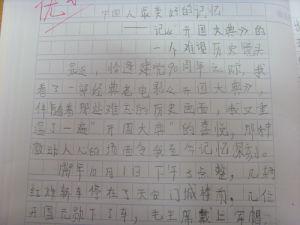 优
中国人最美好的记忆
——记《开国大典》的
一个难忘历史镜头
最近,恰逢建党90周年之际,我
看了一部经典老电影《开国大典》,
伴随着那些难忘的历史画面,我又重
温了一遍"开国大典"的喜悦,那种
激动人心的场面令我至今记忆深刻。
年10月1日下午3点整,几辆
红旗轿车停在了天安门城楼前,几位
开国元勋下了车,毛主席戴上军帽,